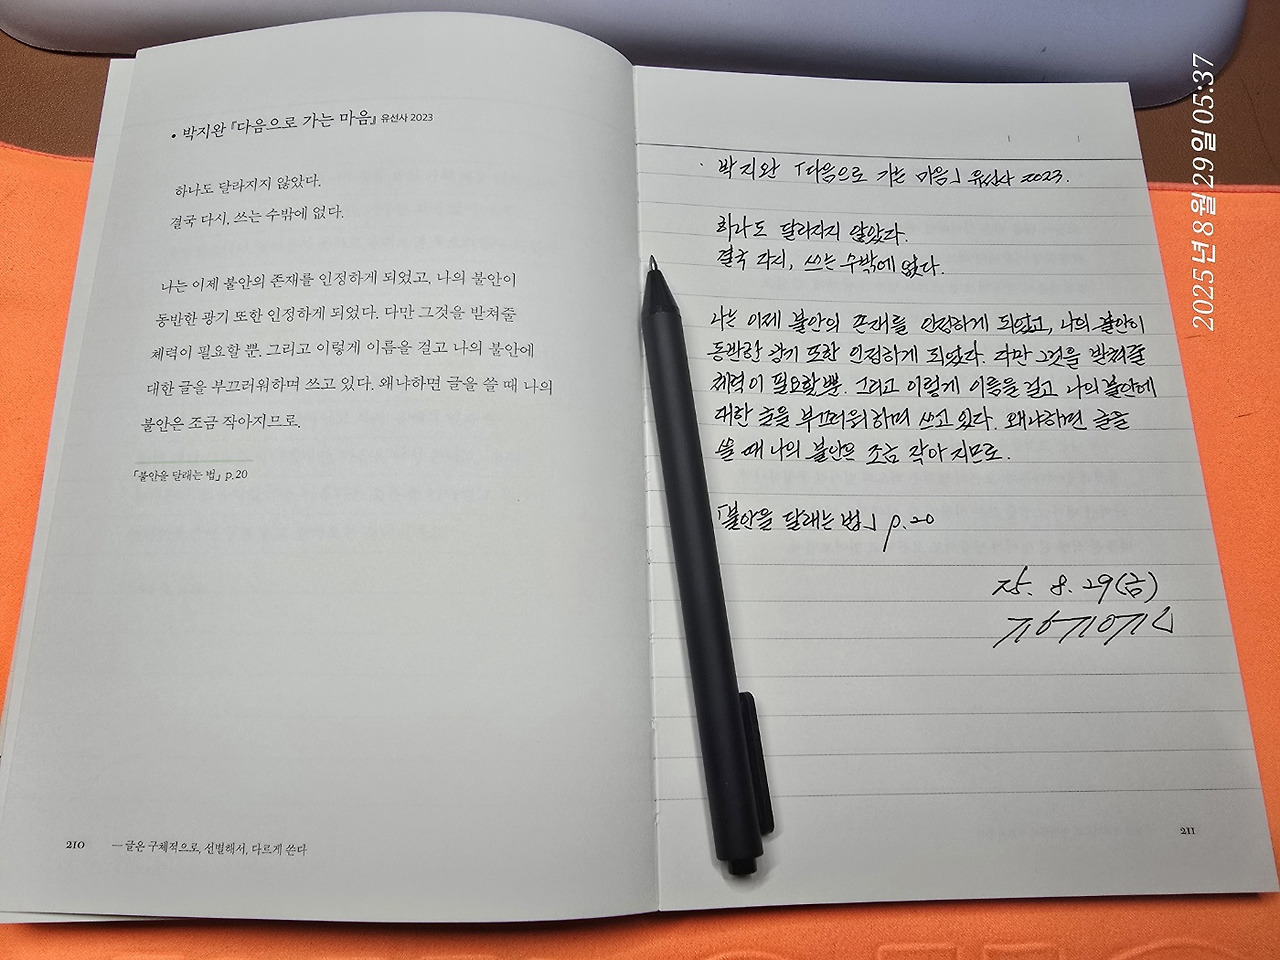 • 박지완 『다음으로 가는 마음』 유선사 2023
하나도 달라지지 않았다.
결국 다시, 쓰는 수밖에 없다.
나는 이제 불안의 존재를 인정하게 되었고, 나의 불안이
동반한 광기 또한 인정하게 되었다. 다만 그것을 받쳐줄
체력이 필요할 뿐. 그리고 이렇게 이름을 걸고 나의 불안에
대한 글을 부끄러워하며 쓰고 있다. 왜냐하면 글을 쓸 때 나의
불안은 조금 작아지므로.
「불안을 달래는 법」 p.20
210 — 글은 구체적으로, 선별해서, 다르게 쓴다
· 박지완 「다음으로 가는 마음」 유선사 2023.
하나도 달라지지 않았다.
결국 다시, 쓰는 수밖에 없다.
나는 이제 불안의 존재를 인정하게 되었고, 나의 불안이
동반한 광기 또한 인정하게 되었다. 다만 그것을 받쳐줄
체력이 필요할 뿐. 그리고 이렇게 이름을 걸고 나의 불안에
대한 글을 부끄러워하며 쓰고 있다. 왜냐하면 글을
쓸 때 나의 불안은 조금 작아지므로.
「불안을 달래는 법」 p.20
25. 8. 29(금)
211
2025년 8월 29일 05:37